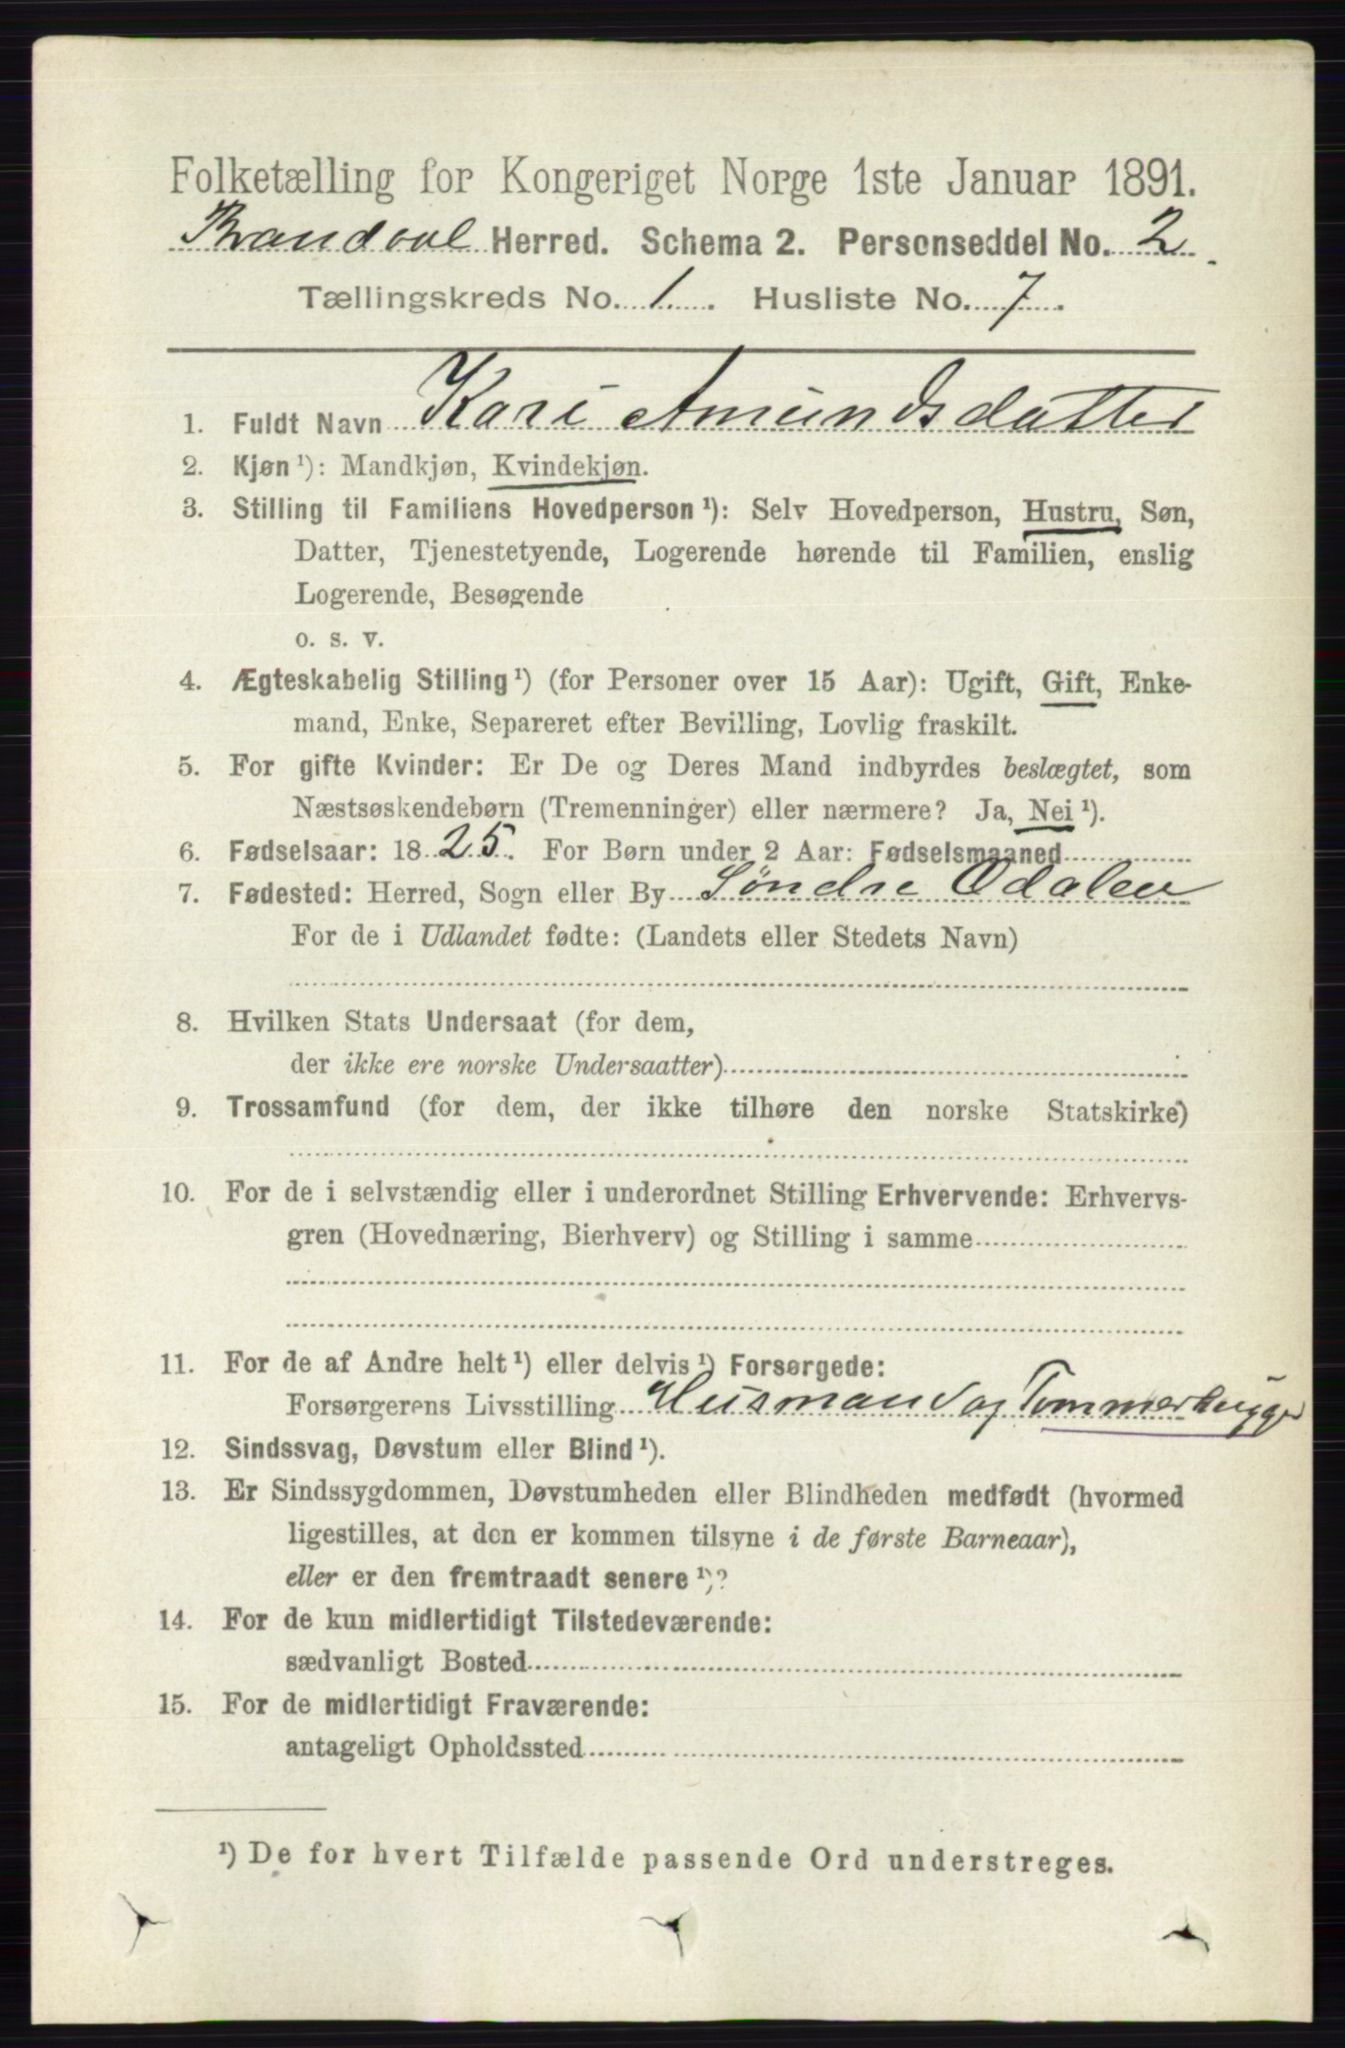 Folketælling for Kongeriget Norge 1ste Januar 1891.
Brandval Herred. Schema 2. Personseddel No. 2
Tællingskreds No. 1. Husliste No. 7.
1. Fuldt Navn Kari Amundsdatter
2. Kjøn ¹): Mandkjøn, Kvindekjøn.
3. Stilling til Familiens Hovedperson ¹): Selv Hovedperson, Hustru, Søn,
Datter, Tjenestetyende, Logerende hørende til Familien, enslig
Logerende, Besøgende
o. s. v.
4. Ægteskabelig Stilling ¹) (for Personer over 15 Aar): Ugift, Gift, Enke-
mand, Enke, Separeret efter Bevilling, Lovlig fraskilt.
5. For gifte Kvinder: Er De og Deres Mand indbyrdes beslægtet, som
Næstsøskendebørn (Tremenninger) eller nærmere? Ja, Nei ¹).
6. Fødselsaar: 1825. For Børn under 2 Aar: Fødselsmaaned
7. Fødested: Herred, Sogn eller By Søndre Odalen
For de i Udlandet fødte: (Landets eller Stedets Navn)
8. Hvilken Stats Undersaat (for dem,
der ikke ere norske Undersaatter)
9. Trossamfund (for dem, der ikke tilhøre den norske Statskirke)
10. For de i selvstændig eller i underordnet Stilling Erhvervende: Erhvervs-
gren (Hovednæring, Bierhverv) og Stilling i samme
11. For de af Andre helt ¹) eller delvis ¹) Forsørgede:
Forsørgerens Livsstilling Husmand og Tømmerhugger
12. Sindssvag, Døvstum eller Blind ¹).
13. Er Sindssygdommen, Døvstumheden eller Blindheden medfødt (hvormed
ligestilles, at den er kommen tilsyne i de første Barneaar),
eller er den fremtraadt senere ¹)?
14. For de kun midlertidigt Tilstedeværende:
sædvanligt Bosted
15. For de midlertidigt Fraværende:
antageligt Opholdssted
¹) De for hvert Tilfælde passende Ord understreges.